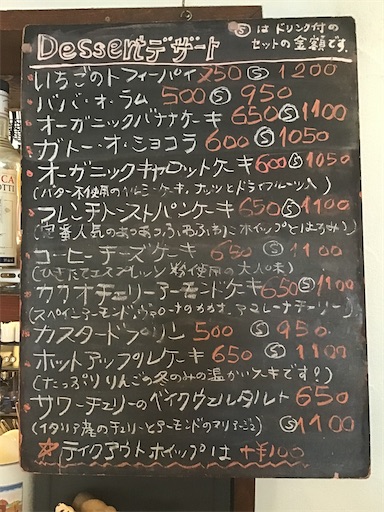 Dessert デザート Ⓢはドリンク付の
セットの金額です。
いちごのトフィーパイ 750 Ⓢ 1200
ババ・オ・ラム 500 Ⓢ 950
オーガニックバナナケーキ 650 Ⓢ 1100
ガトー・オ・ショコラ 600 Ⓢ 1050
オーガニックキャロットケーキ 600 Ⓢ 1050
(バター不使用のヘルシーケーキ。ナッツとドライフルーツ入)
フレンチトーストパンケーキ 650 Ⓢ 1100
(定番人気のあつあつふわふわにホイップとはちみつ)
コーヒーチーズケーキ 650 Ⓢ 1100
(ひきたてエスプレッソ粉使用の大人味)
カカオチェリーアーモンドケーキ 650 Ⓢ 1100
(スペインアーモンド、ヴァローナのカカオ、アマレーナチェリー)
カスタードプリン 500 Ⓢ 950
ホットアップルケーキ 650 Ⓢ 1100
(たっぷりりんごの冬のみの温かいケーキです!)
サワーチェリーのベイクウェルタルト 650
(イタリア産のチェリーとアーモンドのマリアージュ) Ⓢ 1100
☆テイクアウトホイップは +¥100